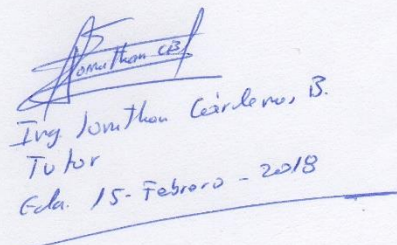 Jonathan CB
Ing Jonathan Cárdenas, B.
Tutor
Ecla. 15 - Febrero - 2018